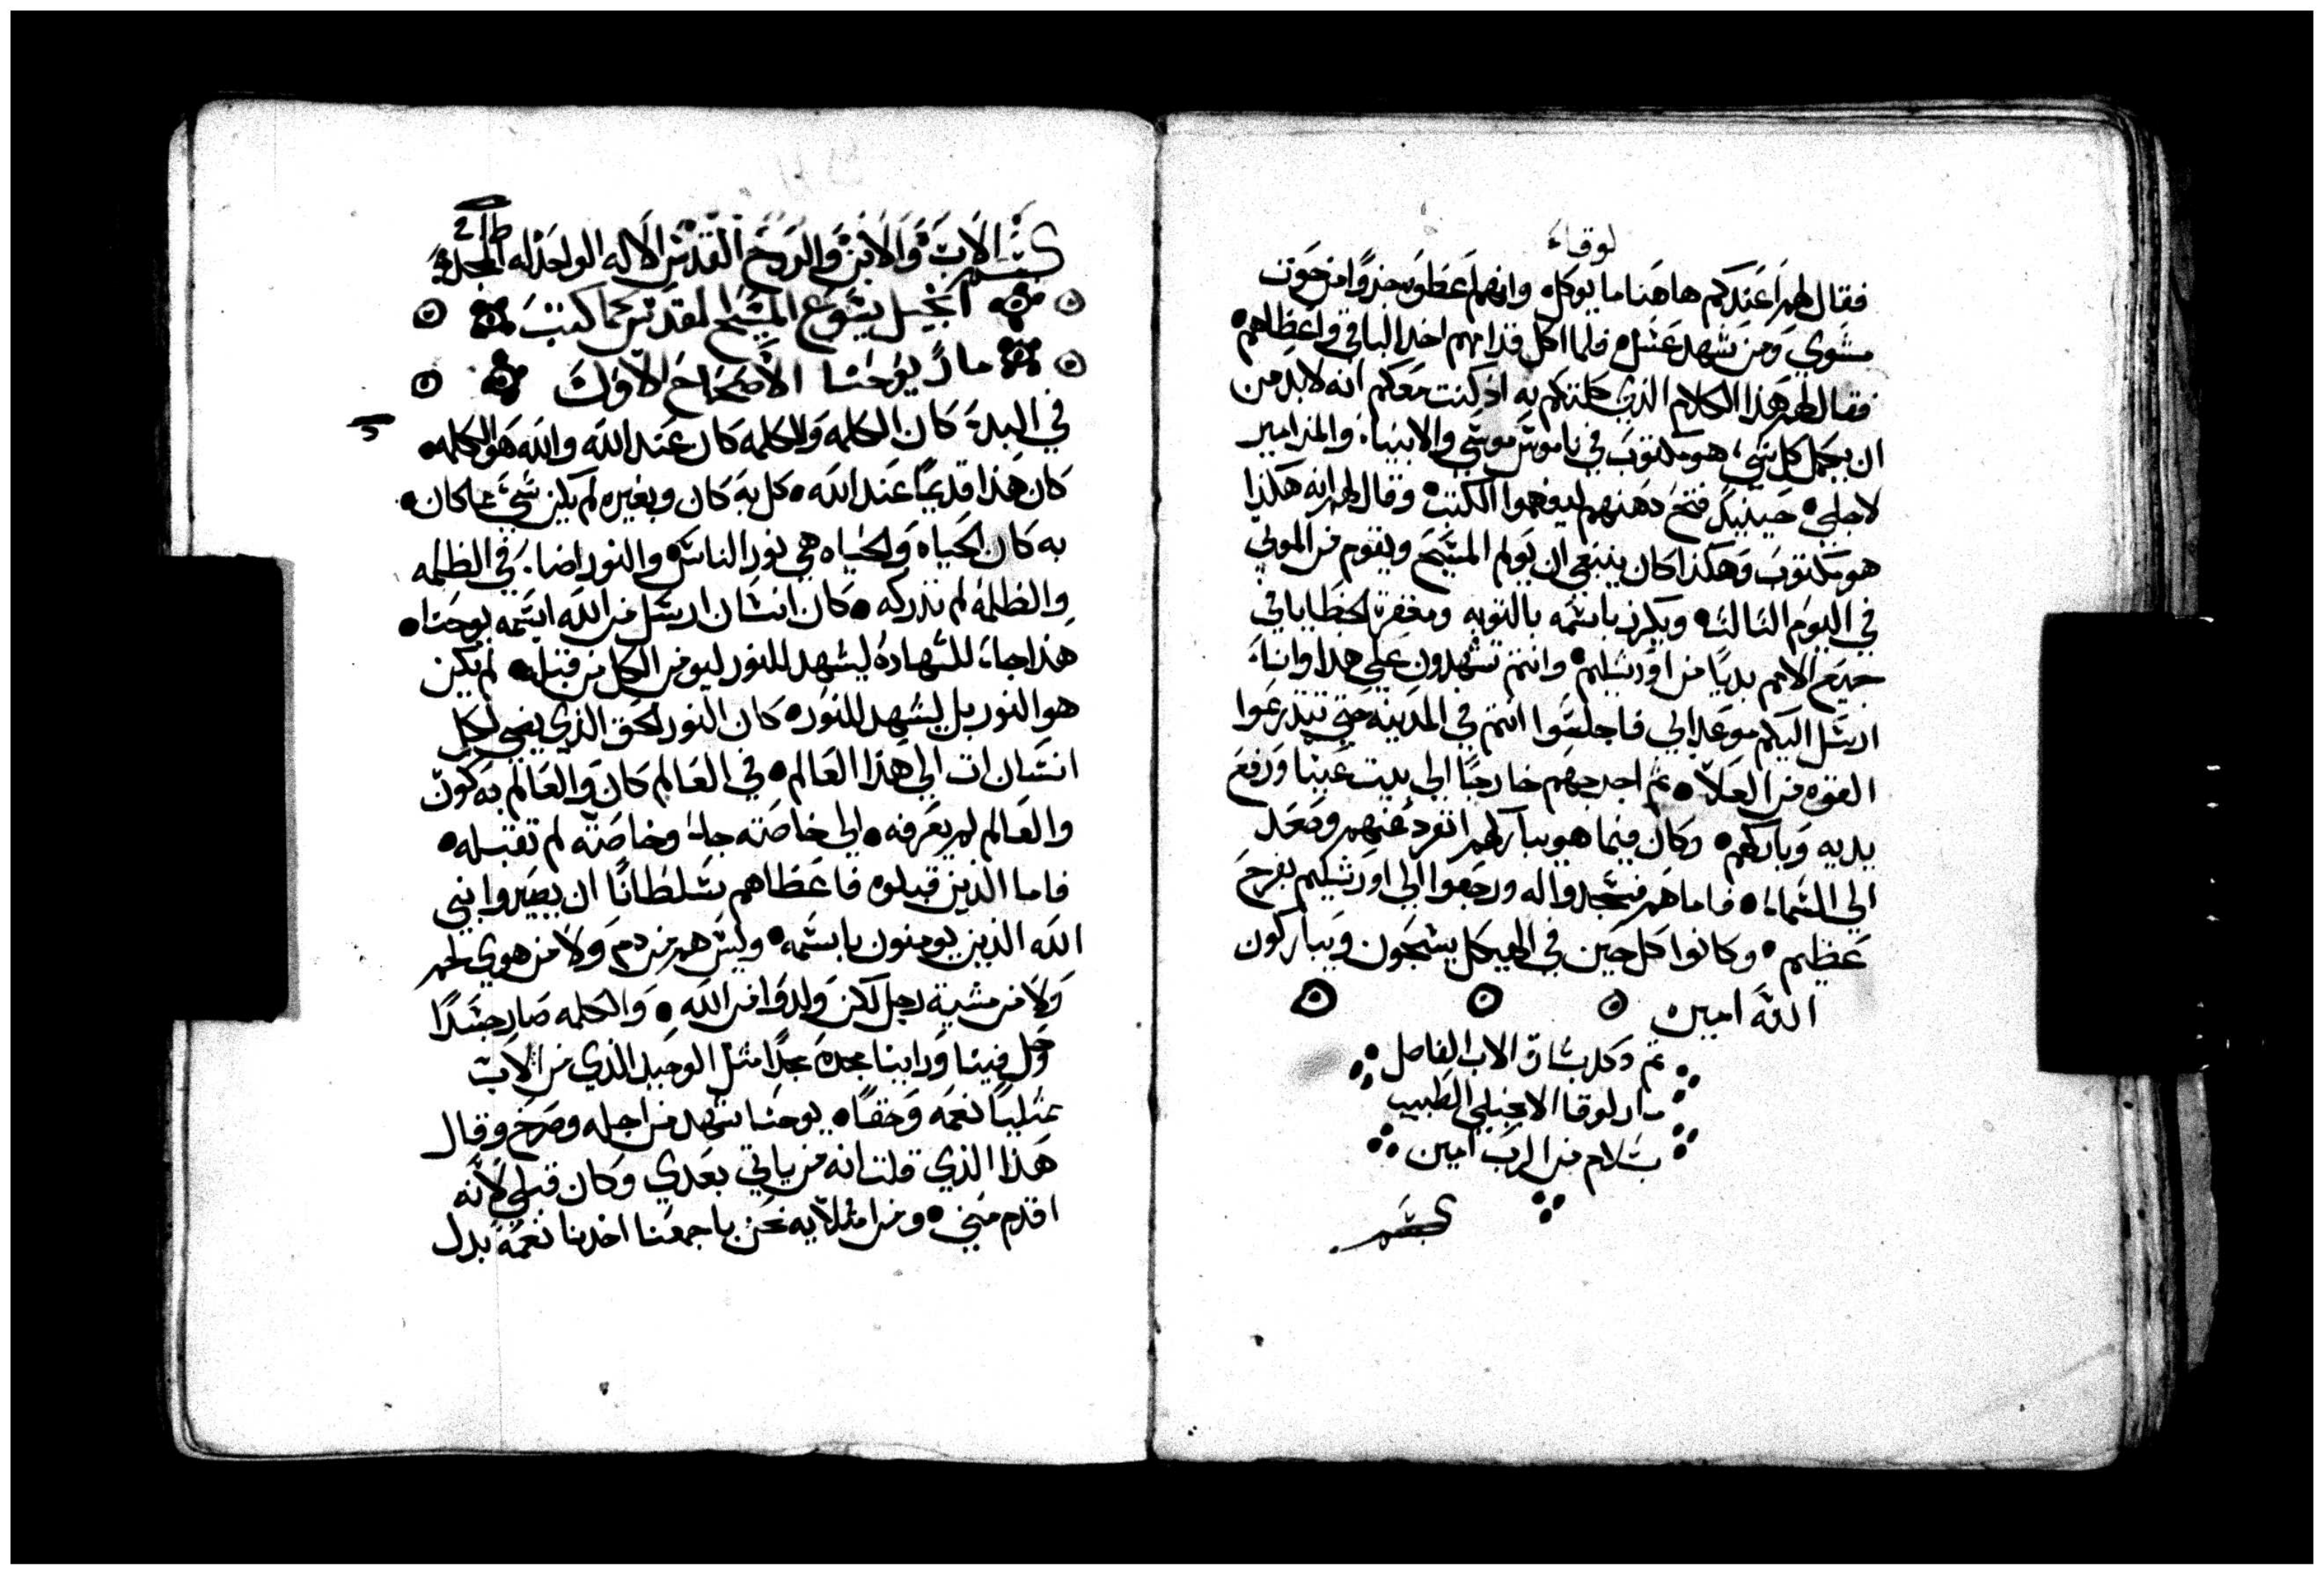 لوقاء
فقال لهم اعندكم هاهنا ما يوكل وانهم اعطوه جزوًا من حوت
مشوي ومن شهد عسل فلما اكل قدامهم اخد الباقي واعطاهم
فقال لهم هذا الكلام الذي كلمتكم به اذ كنت معكم انه لا بد من
ان يكمل كل شيء هو مكتوب في ناموس موسي والانبياء والمزامير
لاجلي حينيد فتح دهنهم ليفهموا الكتب وقال لهم انه هكذا
هو مكتوب وهكذا كان ينبغي ان يولم المسيح ويقوم من الموتي
في اليوم التالت ويكرز باسمه بالتوبه ومغفرة الخطايا في
جميع الامم بديًا من اورشليم وانتم تشهدون علي هدا وانا
ارسل اليكم موعد ابي فاجلسوا انتم في المدينه حتي تتدرعوا
القوه من العلاء تم اخرجهم خارجًا الي بيت عنيا ورفع
يديه وباركهم وكان فيما هو يباركهم انفرد عنهم وصعد
الي السماء فاما هم فسجدوا له ورجعوا الي اورشليم بفرح
عظيم وكانوا كل حين في الهيكل يسبحون ويباركون
الله امين
تم وكمل بشارة الاب الفاضل
مار لوقا الانجيلي الطبيب
بسلام من الرب امين
بسم
بسم الاب والابن والروح القدس الاله الواحد له المجد
انجيل يسوع المسيح المقدس كما كتب
مار يوحنا الاصحاح الاول
في البدء كان الكلمه والكلمه كان عند الله والله هو الكلمه
كان هذا قديمًا عند الله كل به كان وبغيره لم يكن شيء مما كان
به كان الحياه والحياه هي نور الناس والنور اضاء في الظلمه
والظلمة لم تدركه كان انسان ارسل من الله اسمه يوحنا
هذا جاء للشهادة ليشهد للنور ليومن الكل من قبله لم يكن
هو النور بل ليشهد للنور كان النور الحق الذي يضي لكل
انسان ات الي هذا العالم في العالم كان والعالم به كون
والعالم لم يعرفه الي خاصته جاء وخاصته لم تقبله
فاما الذين قبلوه فاعطاهم سلطانًا ان يصيروا بني
الله الذين يومنون باسمه وليس هم من دم ولا من هوي لحم
ولا من مشية رجل لكن ولدوا من الله والكلمه صار جسدًا
وحل فينا وراينا مجده مجدًا متل الوحيد الذي من الاب
ممتليًا نعمه وحقًا يوحنا شهد من اجله وصرخ وقال
هذا الذي قلت انه من ياتي بعدي وكان قبلي لانه
اقدم مني ومن امتلايه نحن باجمعنا اخدنا نعمة بدل